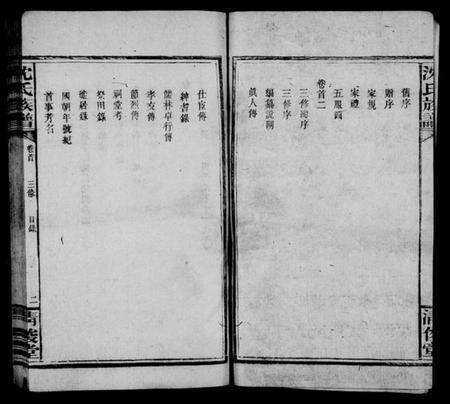 沈氏族譜
舊序
贈序
家規
家禮
五服圖
卷首二
三修總序
三修序
編纂說
戲人傳
清儀堂
仕宦傳
紳耆錄
儒林卓行傳
孝友傳
節烈傳
祠堂考
祭田錄
遷居錄
國朝年號紀
首事芳名
沈氏族譜
卷首
三修
目錄
二
清儀堂